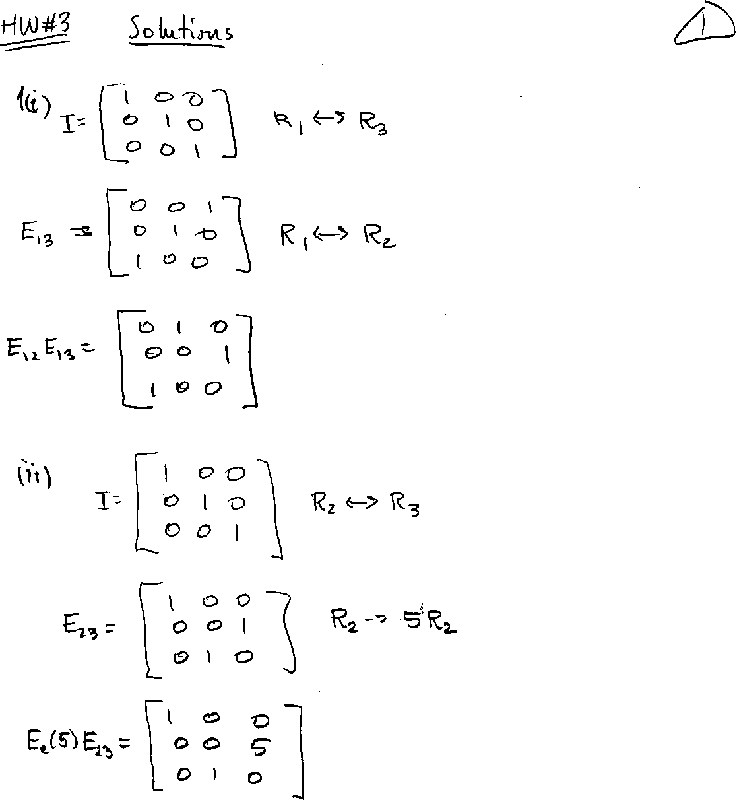 HW#3 Solutions 1
1(i) I = [ 1 0 0
0 1 0
0 0 1 ] R1 ↔ R3
E13 = [ 0 0 1
0 1 0
1 0 0 ] R1 ↔ R2
E12 E13 = [ 0 1 0
0 0 1
1 0 0 ]
(ii) I = [ 1 0 0
0 1 0
0 0 1 ] R2 ↔ R3
E23 = [ 1 0 0
0 0 1
0 1 0 ] R2 → 5R2
E2(5) E23 = [ 1 0 0
0 0 5
0 1 0 ]